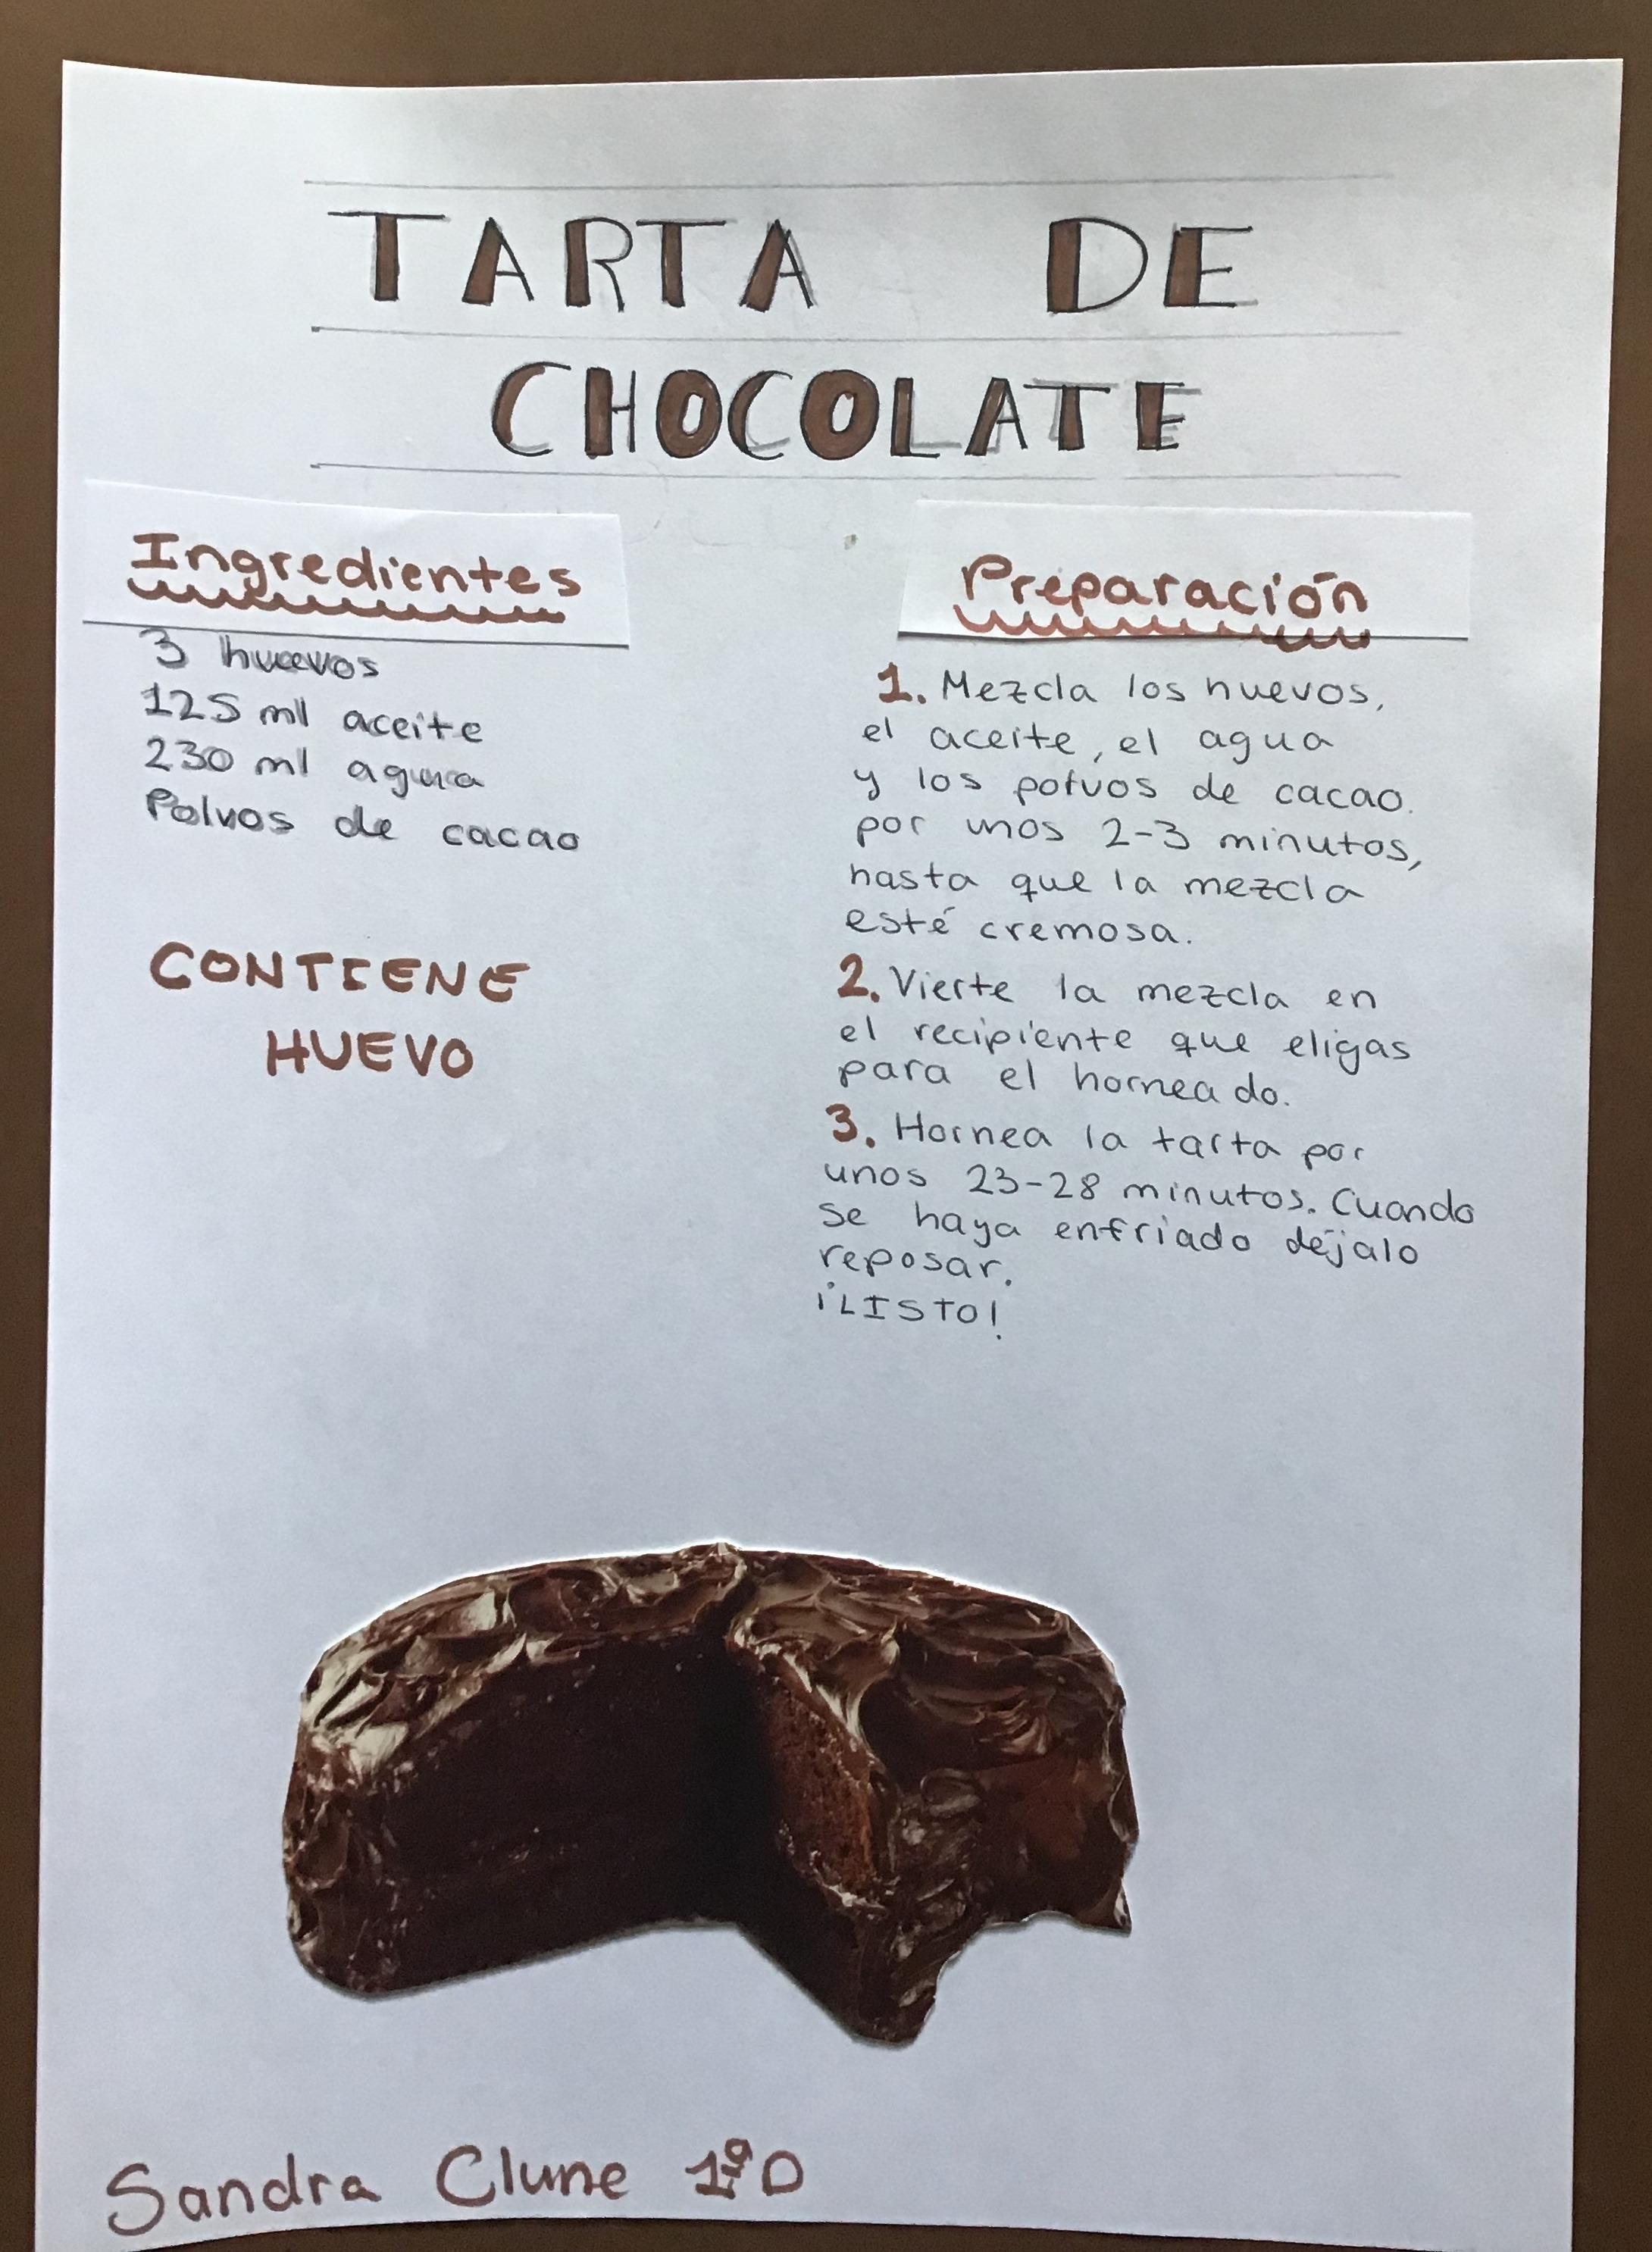 TARTA DE
CHOCOLATE
Ingredientes
3 huevos
125 ml aceite
230 ml agua
Polvos de cacao
CONTIENE
HUEVO
Preparación
1. Mezcla los huevos,
el aceite, el agua
y los polvos de cacao.
por unos 2-3 minutos,
hasta que la mezcla
esté cremosa.
2. Vierte la mezcla en
el recipiente que eligas
para el horneado.
3. Hornea la tarta por
unos 23-28 minutos. Cuando
se haya enfriado déjalo
reposar.
¡LISTO!
Sandra Clune 1ºD